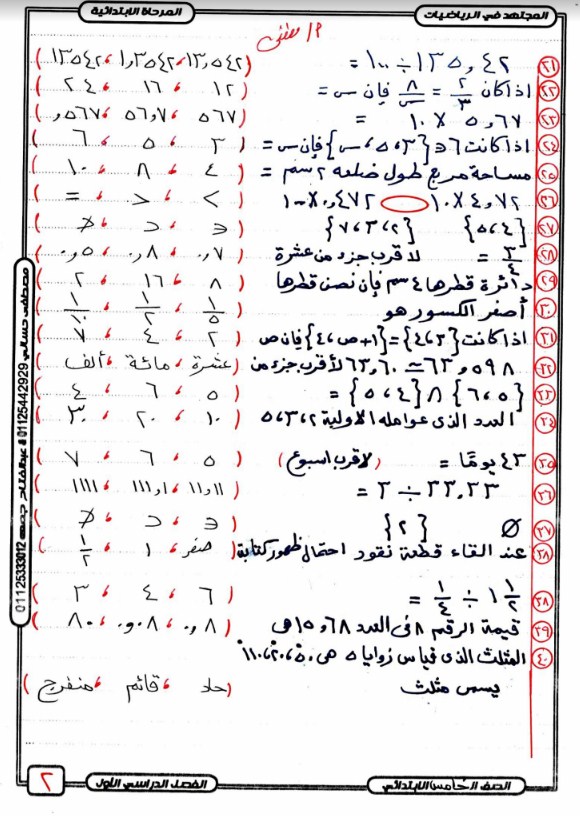 المجتهد في الرياضيات
المرحلة الابتدائية
أ/ مصطفى
(٢١) ١٣٥,٤٢ ÷ ١٠٠ = ( ١٣,٥٤٢ ، ١,٣٥٤٢ ، ١٣٥٤٢ )
(٢٢) اذا كان ٢/٣ = ٨/س فإن س = ( ١٢ ، ١٦ ، ٢٤ )
(٢٣) ٥,٦٧ × ١٠ = ( ٥٦٧ ، ٥٦,٧ ، ,٥٦٧ )
(٢٤) اذا كانت ٦ ∈ {٣، ٥، س} فإن س = ( ٣ ، ٥ ، ٦ )
(٢٥) مساحة مربع طول ضلعه ٢ سم = ( ٤ ، ٨ ، ١٠ )
(٢٦) ٤,٧٢ × ١٠ ٠,٤٧٢ × ١٠٠ ( > ، < ، = )
(٢٧) {٤، ٥} {٢، ٣، ٧} ( ∋ ، ⊂ ، ⊄ )
(٢٨) ٣/٤ = لاقرب جزء من عشرة ( ٠,٧ ، ٠,٨ ، ٠,٥ )
(٢٩) دائرة قطرها ٤ سم فإن نصف قطرها ( ٨ ، ١٦ ، ٢ )
(٣٠) أصغر الكسور هو ( ١/٥ ، ١/٢ ، ١/١٠ )
(٣١) اذا كانت {٣، ٤} = {ص+١، ٤} فإن ص ( ٢ ، ٤ ، ٧ )
(٣٢) ٦٣,٥٩٨ ≃ ٦٣,٦٠ لأقرب جزء من ( عشرة ، مائة ، ألف )
(٣٣) {٦، ٥} ∩ {٤، ٥} = { ( ٥ ، ٦ ، ٤ )
(٣٤) العدد الذى عوامله الاولية ٢، ٣، ٥ ( ١٠ ، ٢٠ ، ٣٠ )
(٣٥) ٤٣ يومًا = (لاقرب اسبوع) ( ٥ ، ٦ ، ٧ )
(٣٦) ٣٣,٣٣ ÷ ٣ = ( ١١,١١ ، ١,١١١ ، ١١١١ )
(٣٧) ∅ {٢} ( ∋ ، ⊂ ، ⊄ )
(٣٨) عند القاء قطعة نقود احتمال ظهور كتابة ( صفر ، ١ ، ١/٢ )
(٣٨) ١ ١/٢ ÷ ١/٤ = ( ٦ ، ٤ ، ٣ )
(٣٩) قيمة الرقم ٨ فى العدد ١٥,٦٨ هى ( ٠,٨ ، ٠,٠٨ ، ٨٠ )
(٤٠) المثلث الذى قياس زوايا ه هى ٥٠°، ٢٠°، ١١٠°
يسمى مثلث ( حاد ، قائم ، منفرج )
الصف الخامس الابتدائي
الفصل الدراسي الأول
٢
مصطفى حساني 01125442929 & عبدالفتاح جمعه 01125333012